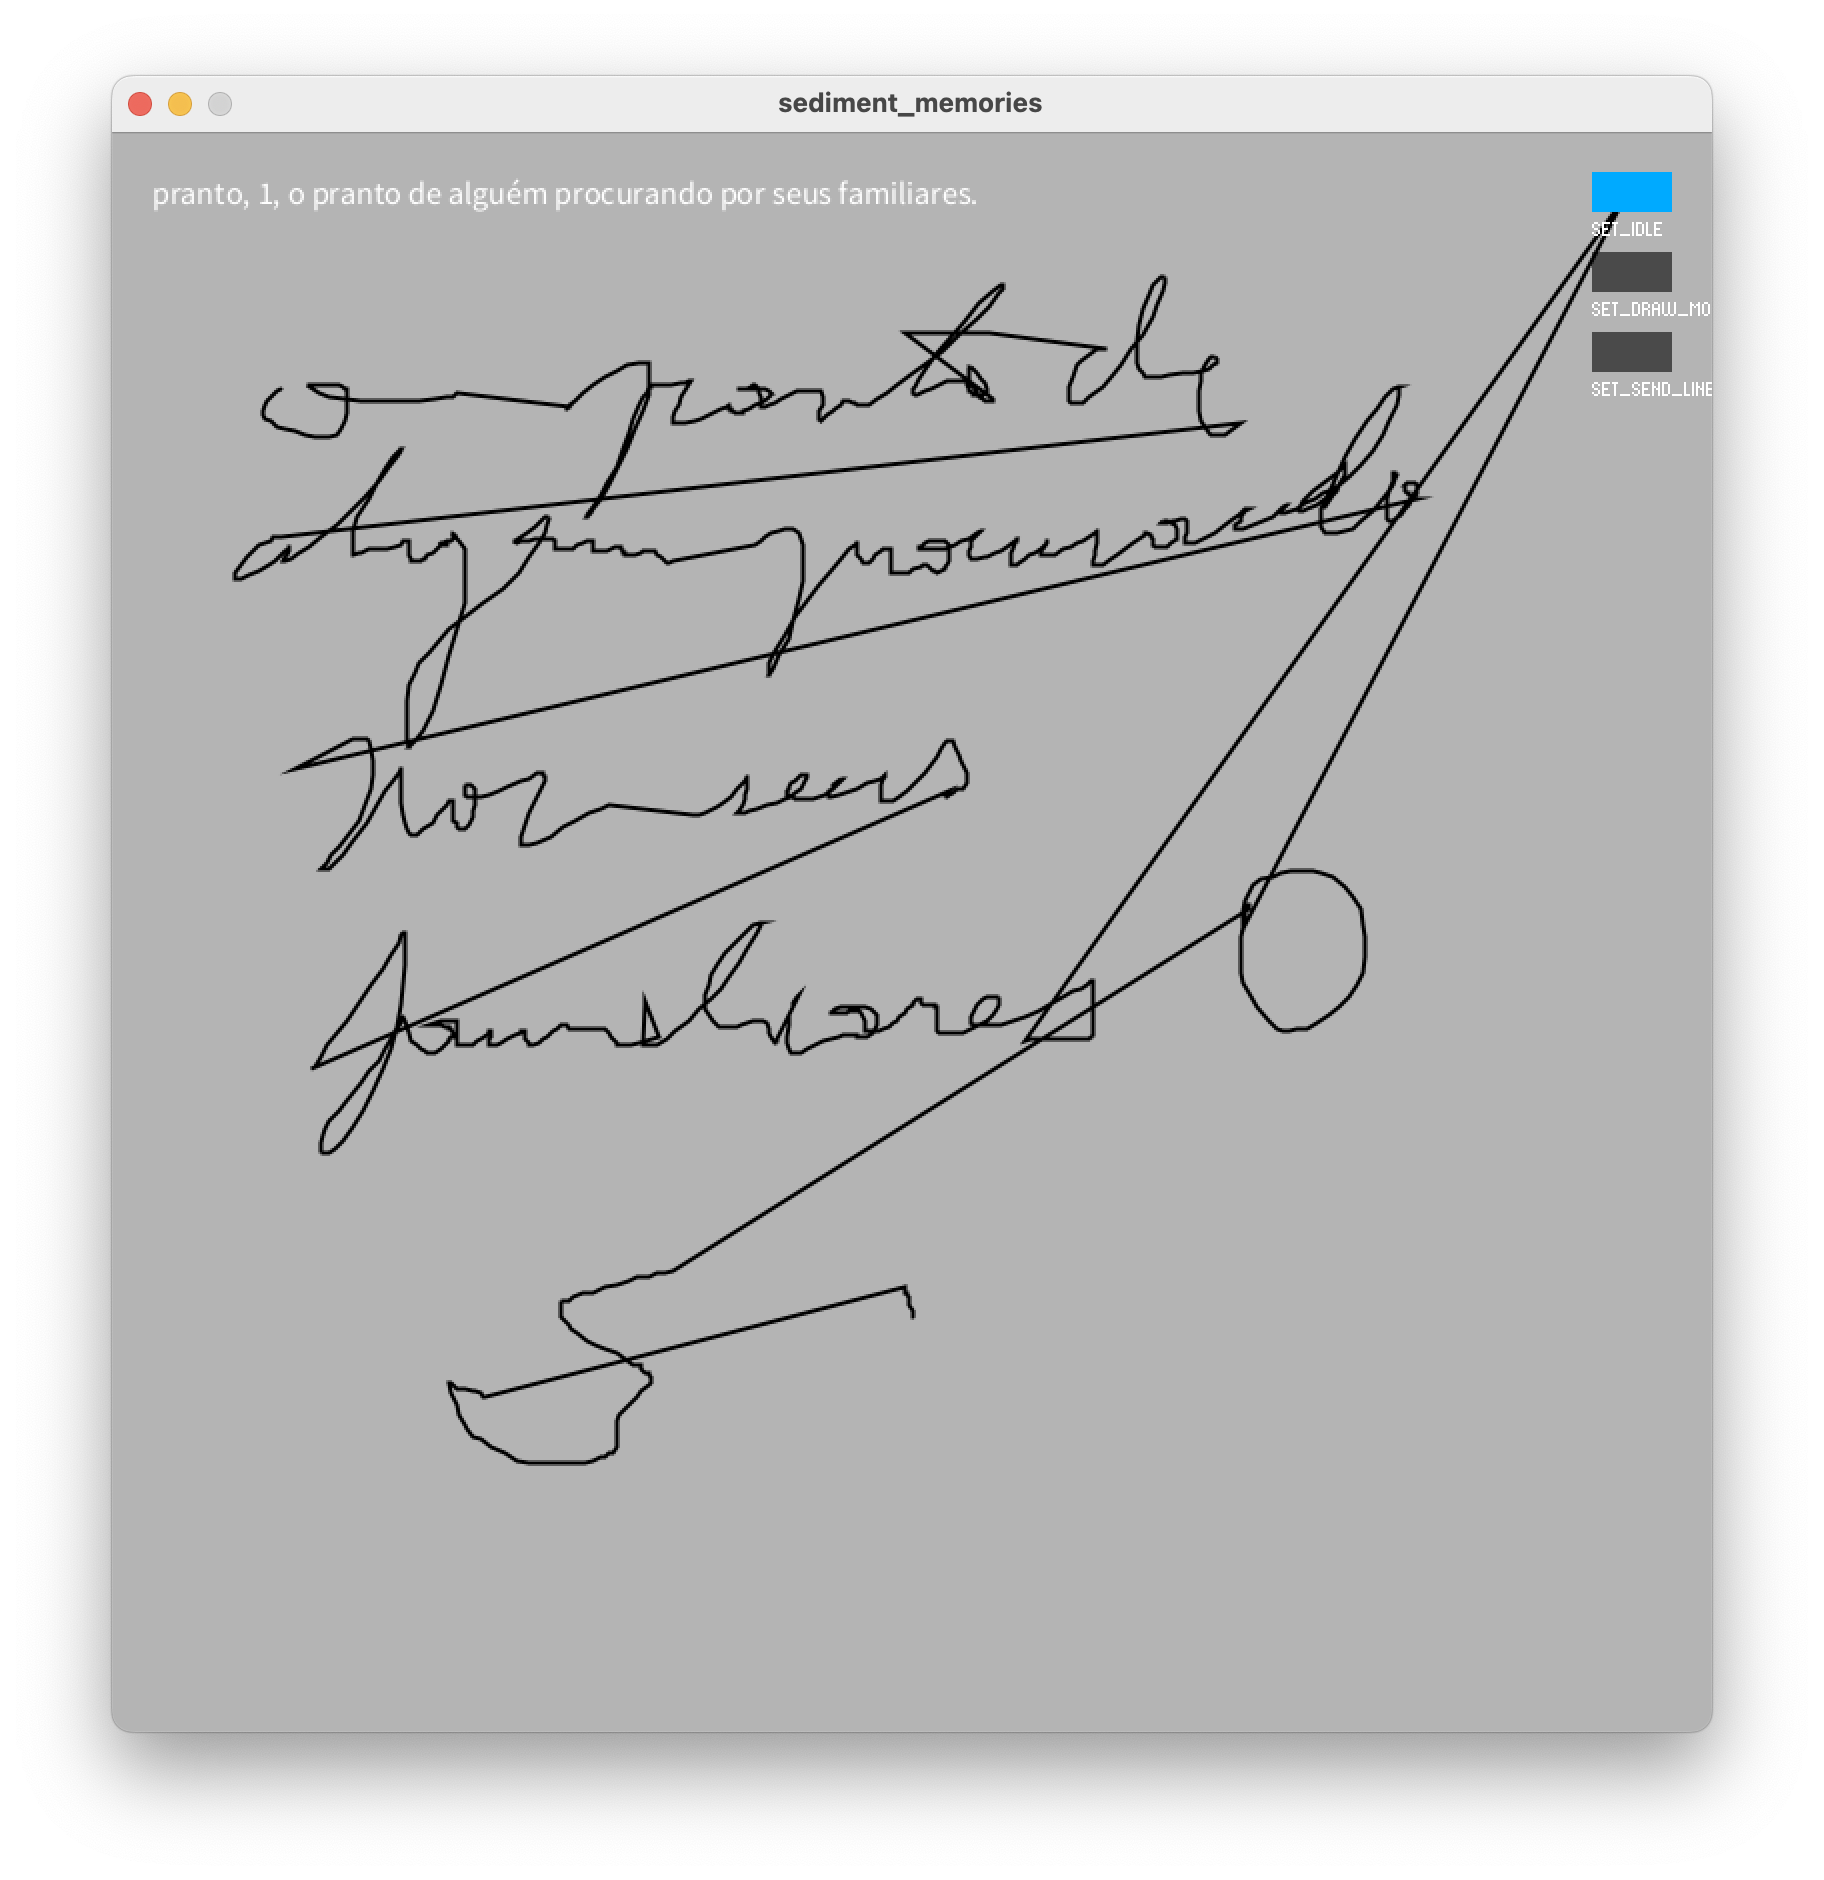 sediment_memories
pranto, 1, o pranto de alguém procurando por seus familiares.
SET_IDLE
SET_DRAW_MO
SET_SEND_LINE
o pranto de
alguem procurando
por seus
familiares